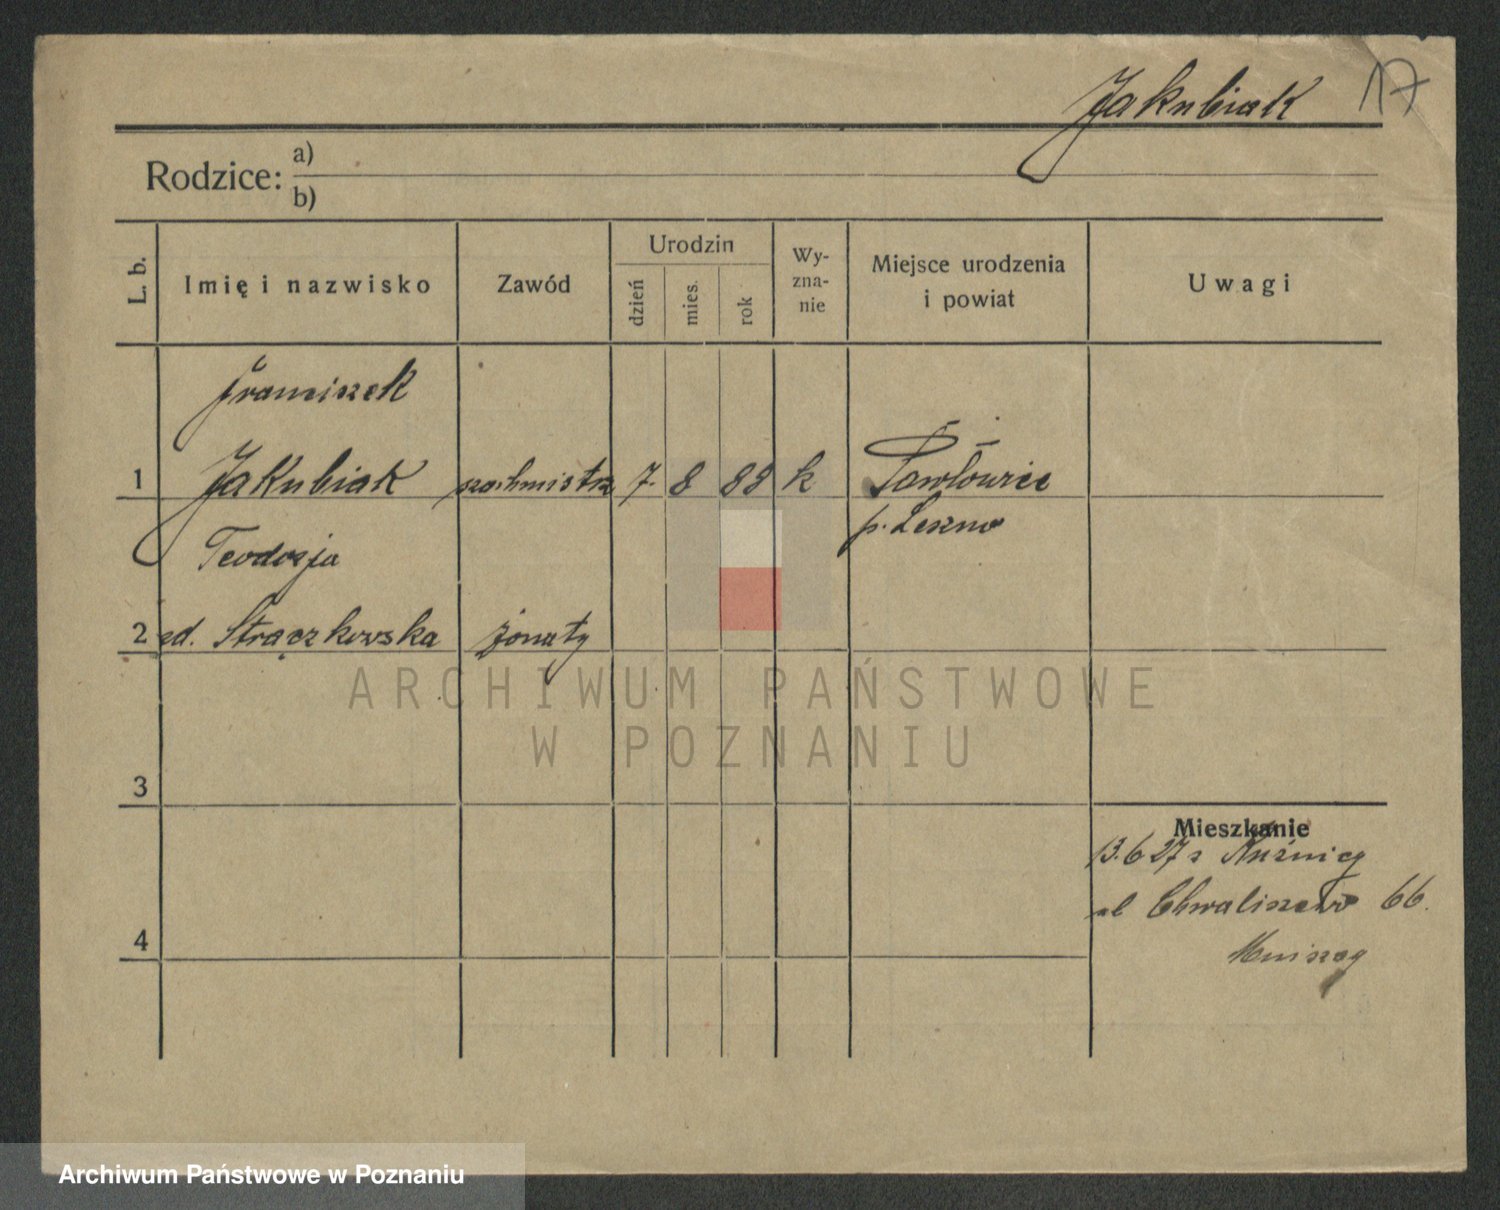 Jakubiak 17
Rodzice: a)
b)
L. b.
Imię i nazwisko
Zawód
Urodzin
dzień
mies.
rok
Wy-
zna-
nie
Miejsce urodzenia
i powiat
Uwagi
Franciszek
1 Jakubiak 7. 8 88 k Pawłowice
p. Leszno
Teodozja
2 Strączkowska żonaty
3
4
Mieszkanie
13.6 27 z Kuźnicy
ul Chwaliszewo 66.
ARCHIWUM PAŃSTWOWE
W POZNANIU
Archiwum Państwowe w Poznaniu